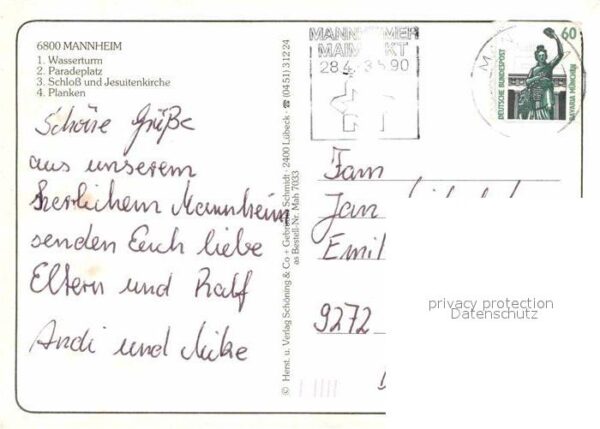 6800 MANNHEIM
1. Wasserturm
2. Paradeplatz
3. Schloß und Jesuitenkirche
4. Planken
Schöne Grüße
aus unserem
herlichem Mannheim
senden Euch liebe
Eltern und Ralf
Andi und Mike
© Herst. u. Verlag Schöning & Co + Gebrüder Schmidt · 2400 Lübeck · ☎ (0451) 31224
as Bestell-Nr. Mah 7033
MANNHEIMER
MAIMARKT
28.4. 3.5.90
60
DEUTSCHE BUNDESPOST
BAVARIA MÜNCHEN
Fam
Jan
Emil
9272
privacy protection
Datenschutz